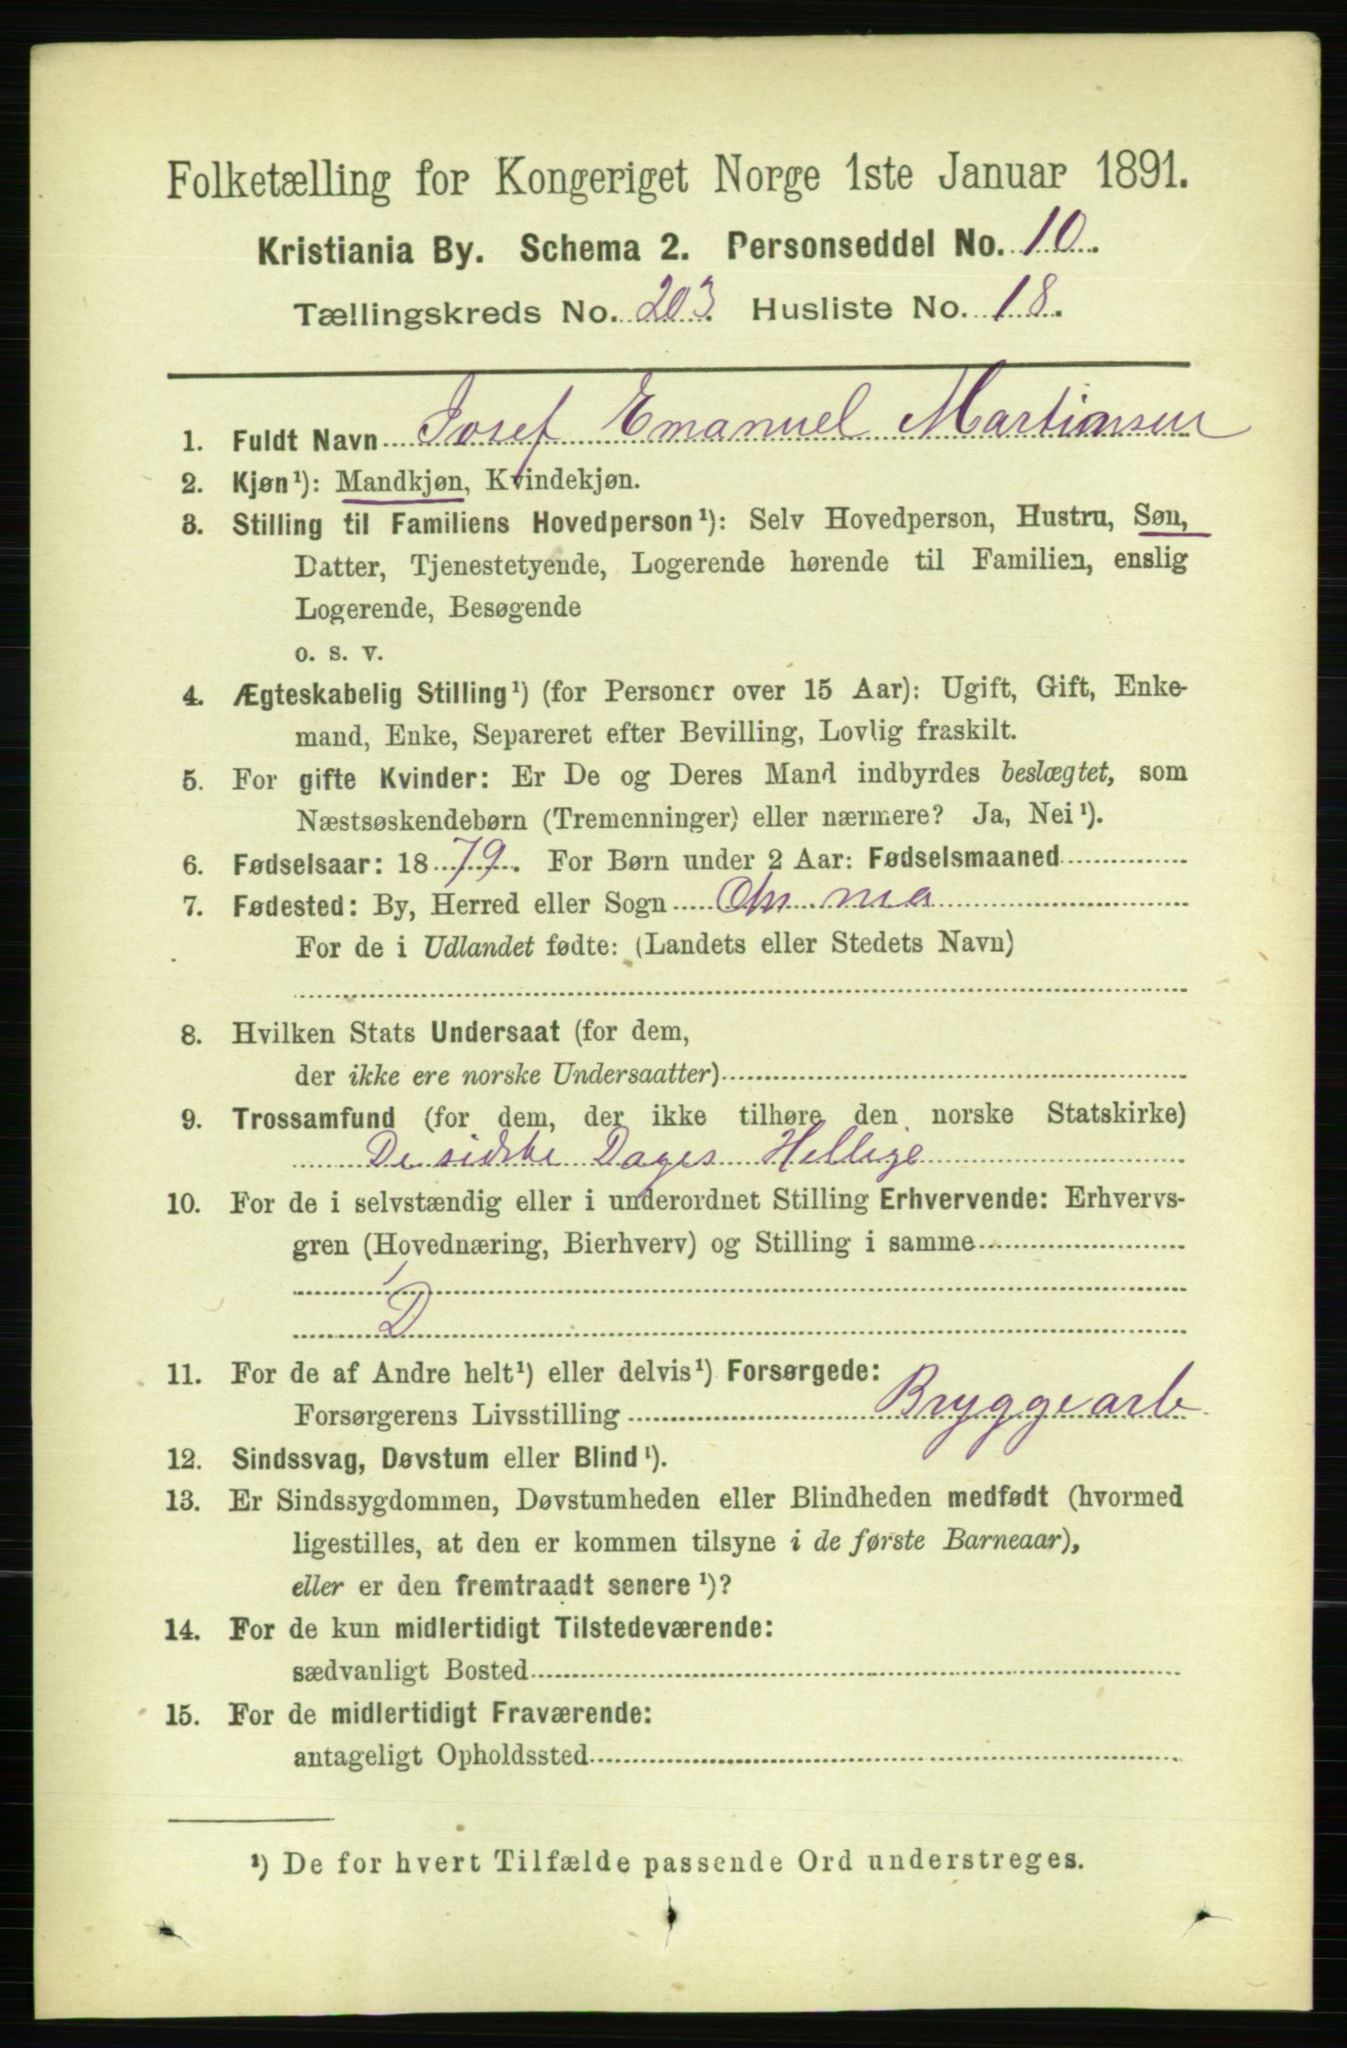 Folketælling for Kongeriget Norge 1ste Januar 1891.
Kristiania By. Schema 2. Personseddel No. 10.
Tællingskreds No. 203. Husliste No. 18.
1. Fuldt Navn Josef Emanuel Martinsen
2. Kjøn¹): Mandkjøn, Kvindekjøn.
3. Stilling til Familiens Hovedperson¹): Selv Hovedperson, Hustru, Søn,
Datter, Tjenestetyende, Logerende hørende til Familien, enslig
Logerende, Besøgende
o. s. v.
4. Ægteskabelig Stilling¹) (for Personer over 15 Aar): Ugift, Gift, Enke-
mand, Enke, Separeret efter Bevilling, Lovlig fraskilt.
5. For gifte Kvinder: Er De og Deres Mand indbyrdes beslægtet, som
Næstsøskendebørn (Tremenninger) eller nærmere? Ja, Nei¹).
6. Fødselsaar: 1879. For Børn under 2 Aar: Fødselsmaaned
7. Fødested: By, Herred eller Sogn Chr. nia
For de i Udlandet fødte: (Landets eller Stedets Navn)
8. Hvilken Stats Undersaat (for dem,
der ikke ere norske Undersaatter)
9. Trossamfund (for dem, der ikke tilhøre den norske Statskirke)
De sidste Dages Hellige
10. For de i selvstændig eller i underordnet Stilling Erhvervende: Erhvervs-
gren (Hovednæring, Bierhverv) og Stilling i samme
D
11. For de af Andre helt¹) eller delvis¹) Forsørgede:
Forsørgerens Livsstilling Bryggearb
12. Sindssvag, Døvstum eller Blind¹).
13. Er Sindssygdommen, Døvstumheden eller Blindheden medfødt (hvormed
ligestilles, at den er kommen tilsyne i de første Barneaar),
eller er den fremtraadt senere¹)?
14. For de kun midlertidigt Tilstedeværende:
sædvanligt Bosted
15. For de midlertidigt Fraværende:
antageligt Opholdssted
¹) De for hvert Tilfælde passende Ord understreges.